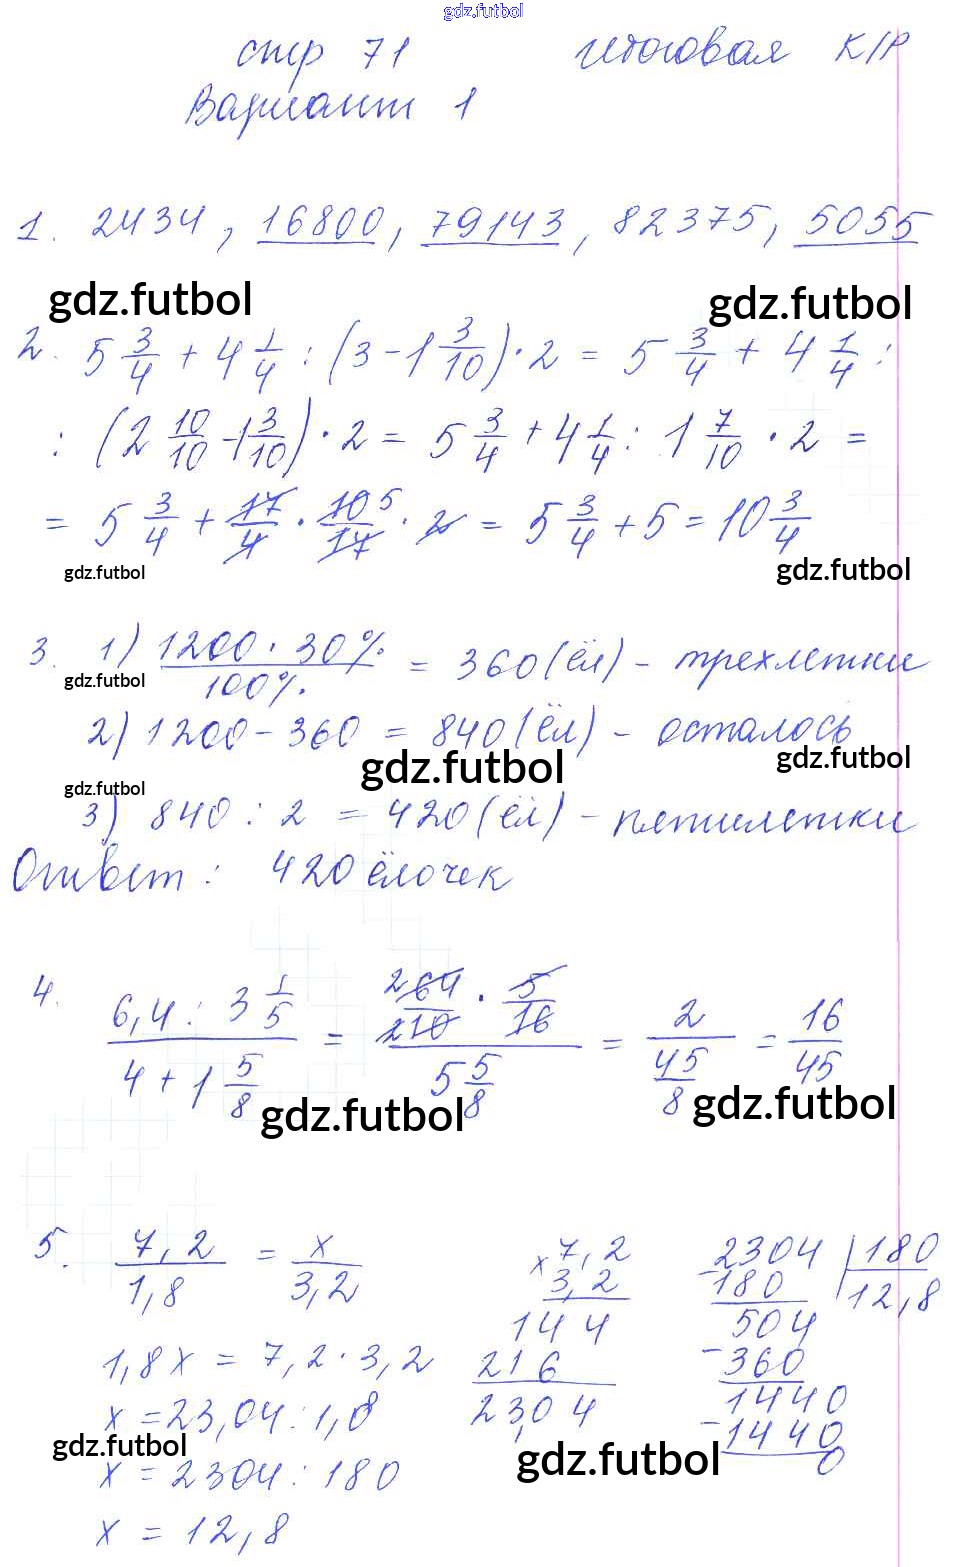 gdz.futbol
стр 71 итоговая К/Р
Вариант 1
1. 2434, 16800, 79143, 82375, 5055
gdz.futbol gdz.futbol
2. 5 3/4 + 4 1/4 : (3 - 1 3/10) · 2 = 5 3/4 + 4 1/4 :
: (2 10/10 - 1 3/10) · 2 = 5 3/4 + 4 1/4 : 1 7/10 · 2 =
= 5 3/4 + 17/4 · 10/17 5 · 2 = 5 3/4 + 5 = 10 3/4
gdz.futbol gdz.futbol
3. 1) 1200 · 30% / 100% = 360 (ёл) - трехлетки
gdz.futbol
2) 1200 - 360 = 840 (ёл) - осталось
gdz.futbol gdz.futbol
gdz.futbol
3) 840 : 2 = 420 (ёл) - пятилетки
Ответ: 420 ёлочек
4. (6,4 : 3 1/5) / (4 + 1 5/8) = (2 64/210 · 5/16) / (5 5/8) = 2 / (45/8) = 16/45
gdz.futbol gdz.futbol
5. 7,2/1,8 = x/3,2
1,8x = 7,2 · 3,2
x = 23,04 : 1,8
gdz.futbol
x = 2304 : 180
x = 12,8
x 7,2
3,2
144
216
23,04
gdz.futbol
2304 | 180
- 180 12,8
504
- 360
1440
- 1440
0